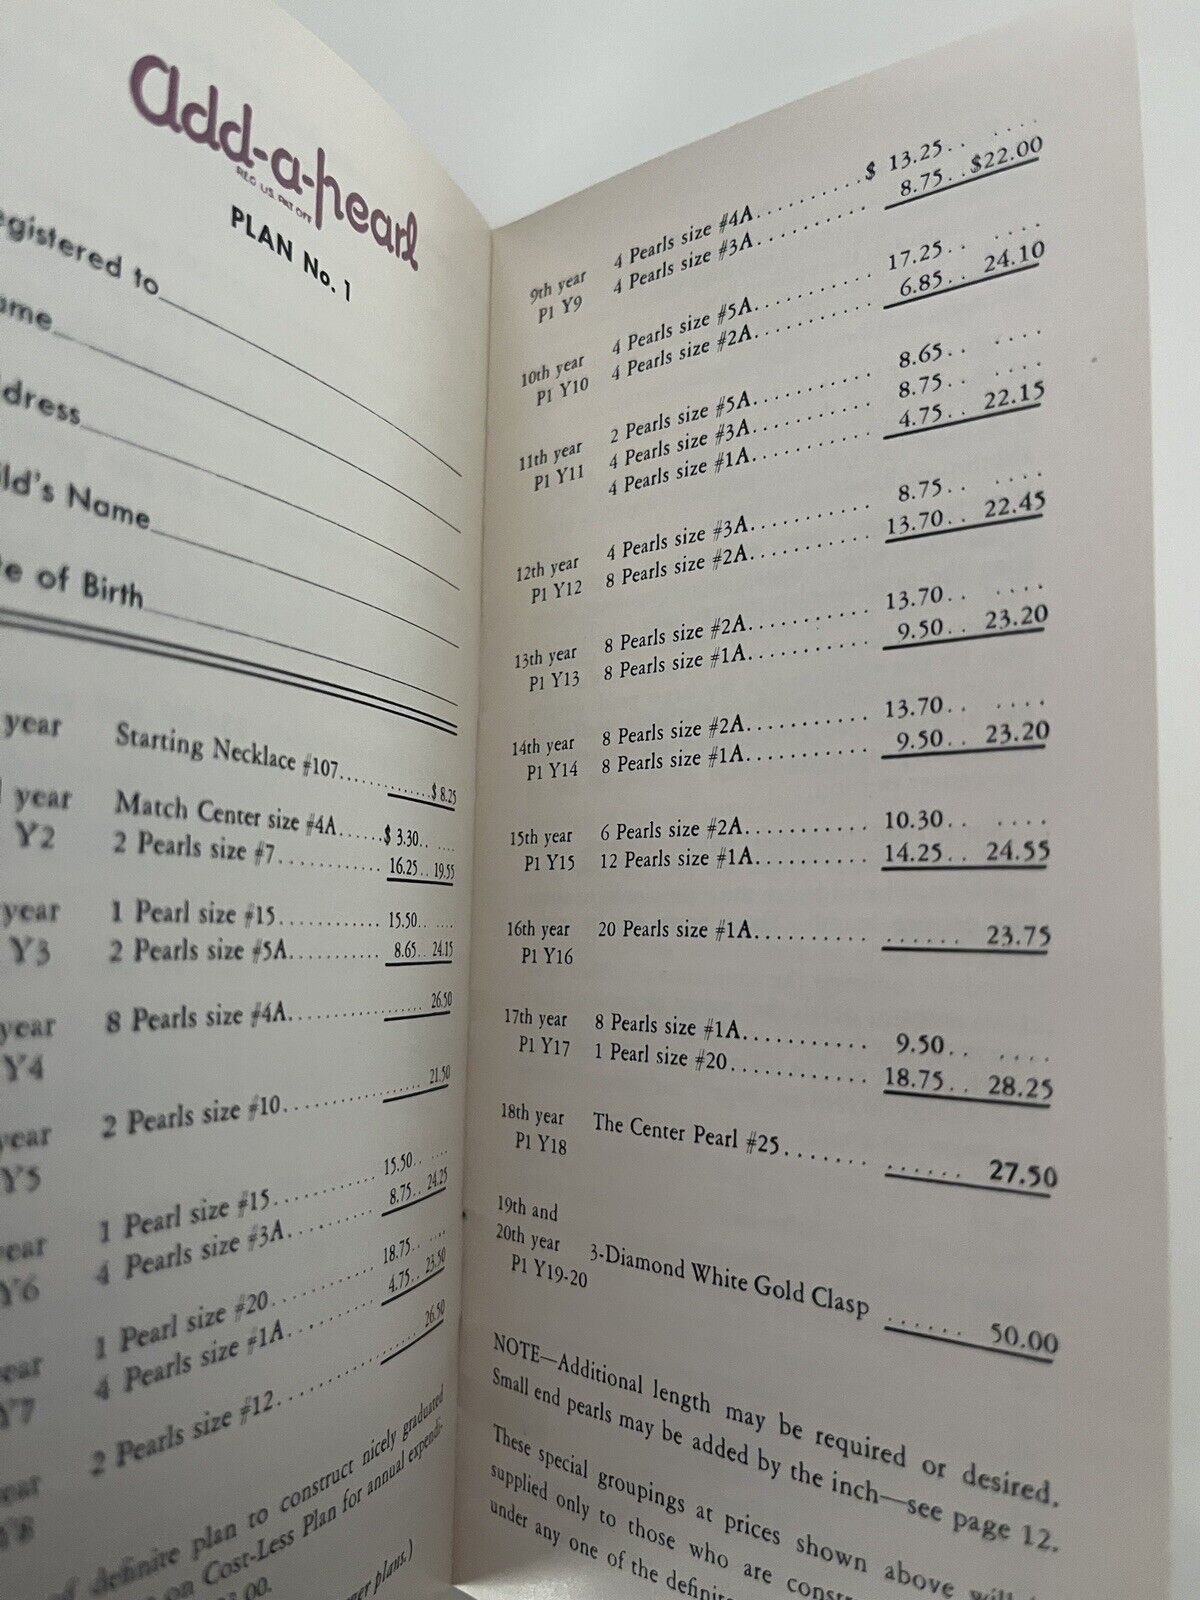 add-a-pearl
REG. U.S. PAT. OFF.
PLAN No. 1
to
Name
Date of Birth
year Starting Necklace #107 $ 8.25
year Match Center size #4A $ 3.30
Y2 2 Pearls size #7 16.25 19.55
year 1 Pearl size #15 15.50
Y3 2 Pearls size #5A 8.65 24.15
year 8 Pearls size #4A 26.50
Y4
year 2 Pearls size #10 21.50
Y5
1 Pearl size #15 15.50
Y6 4 Pearls size #3A 8.75 24.25
1 Pearl size #20 18.75
Y7 4 Pearls size #1A 4.75 23.50
2 Pearls size #12 26.50
definite plan to construct nicely graduated
on Cost-Less Plan for annual
plans.)
9th year 4 Pearls size #4A $ 13.25
P1 Y9 4 Pearls size #3A 8.75 $22.00
10th year 4 Pearls size #5A 17.25
P1 Y10 4 Pearls size #2A 6.85 24.10
11th year 2 Pearls size #5A 8.65
P1 Y11 4 Pearls size #3A 8.75
4 Pearls size #1A 4.75 22.15
12th year 4 Pearls size #3A 8.75
P1 Y12 8 Pearls size #2A 13.70 22.45
13th year 8 Pearls size #2A 13.70
P1 Y13 8 Pearls size #1A 9.50 23.20
14th year 8 Pearls size #2A 13.70
P1 Y14 8 Pearls size #1A 9.50 23.20
15th year 6 Pearls size #2A 10.30
P1 Y15 12 Pearls size #1A 14.25 24.55
16th year 20 Pearls size #1A 23.75
P1 Y16
17th year 8 Pearls size #1A 9.50
P1 Y17 1 Pearl size #20 18.75 28.25
18th year The Center Pearl #25 27.50
P1 Y18
19th and
20th year 3-Diamond White Gold Clasp 50.00
P1 Y19-20
NOTE—Additional length may be required or desired.
Small end pearls may be added by the inch—see page 12.
These special groupings at prices shown above will
supplied only to those who are
under any one of the